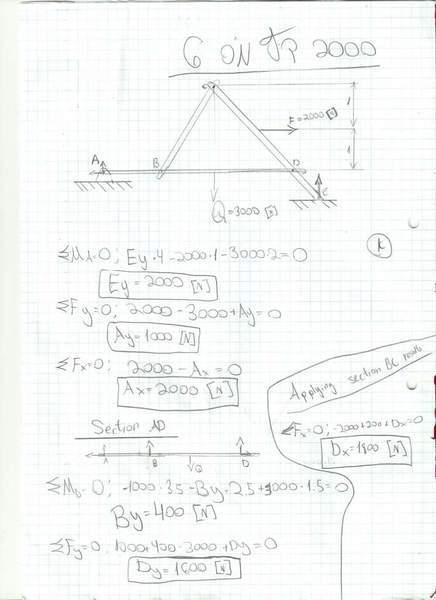 G ON JP 2000
1
F=2000 [N]
A
B
D
1
C
Q=3000 [N]
K
ΣMA=0; Ey·4-2000·1-3000·2=0
Ey=2000 [N]
ΣFy=0; 2000-3000+Ay=0
Ay=1000 [N]
ΣFx=0; 2000-Ax=0
Ax=2000 [N]
Applying section BC results
ΣFx=0; -2000+200+Dx=0
Dx=1800 [N]
Section AD
A
B
Q
D
ΣMD=0; -1000·3.5-By·2.5+3000·1.5=0
By=400 [N]
ΣFy=0; 1000+400-3000+Dy=0
Dy=1600 [N]